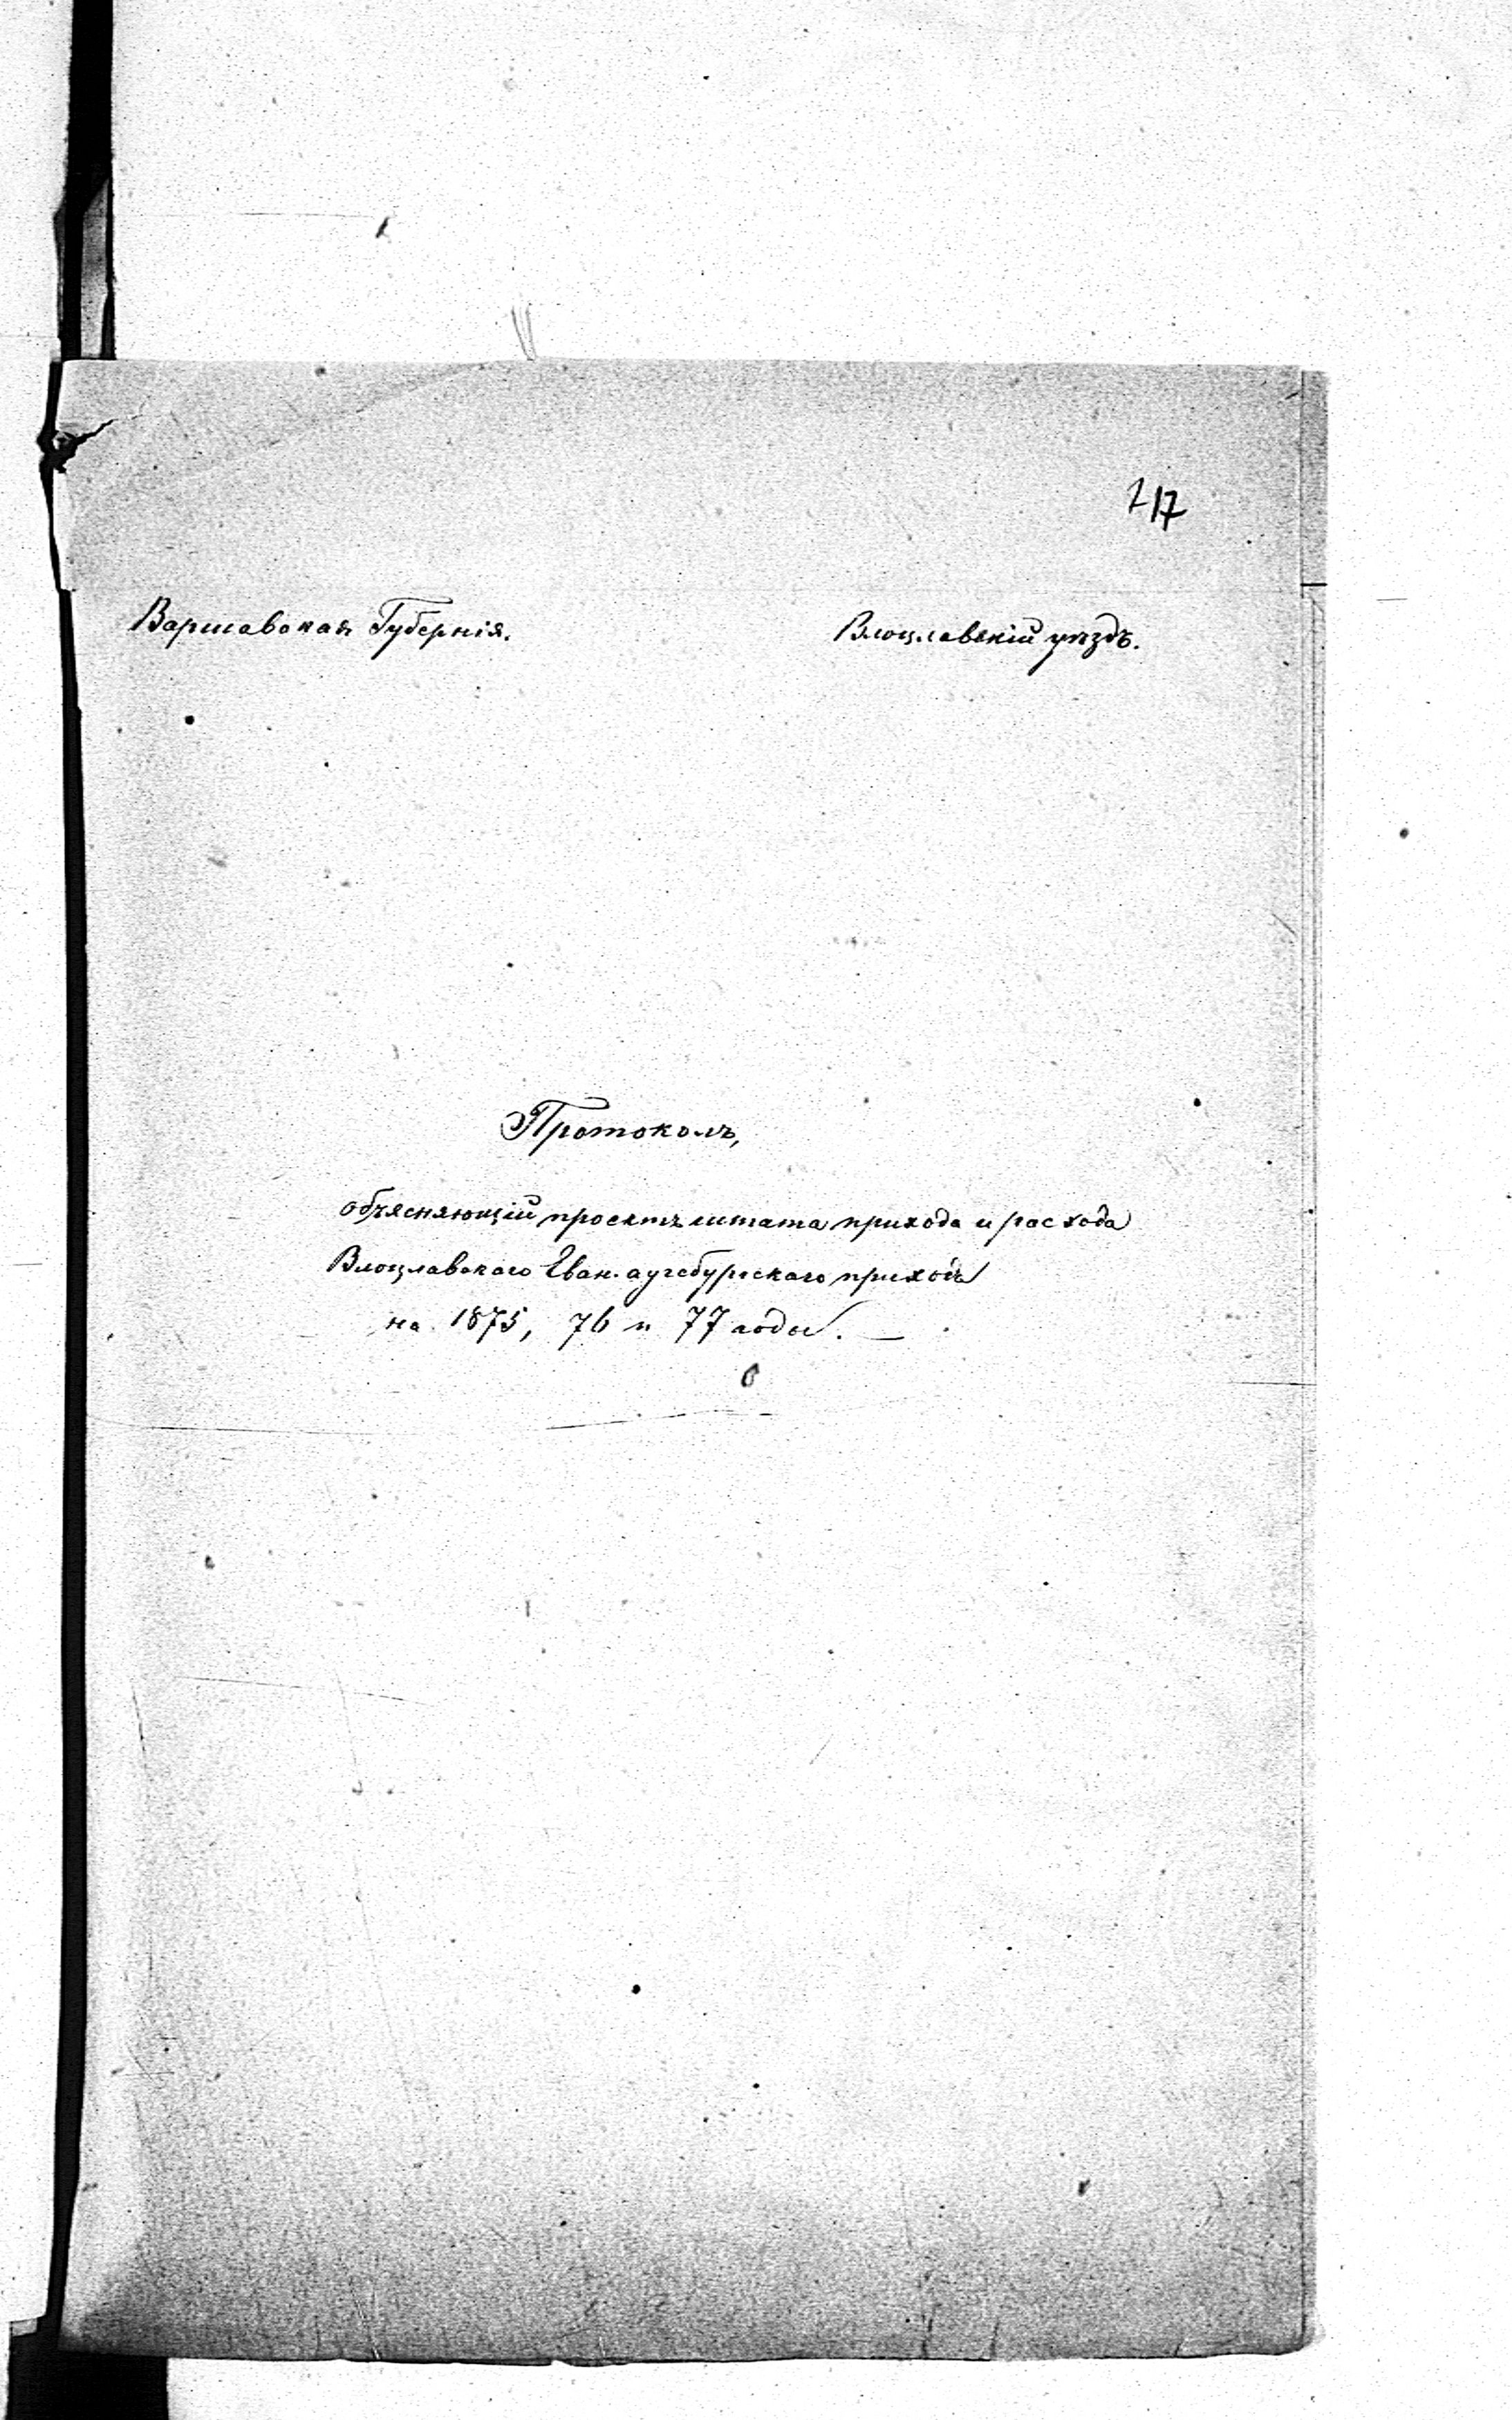 217
Варшавская Губернія. Влоцлавскій уѣздъ.
Протоколъ,
объясняющій проектъ штата прихода и расхода
Влоцлавскаго Еван. аугсбургскаго прихода
на 1875, 76 и 77 годы. —